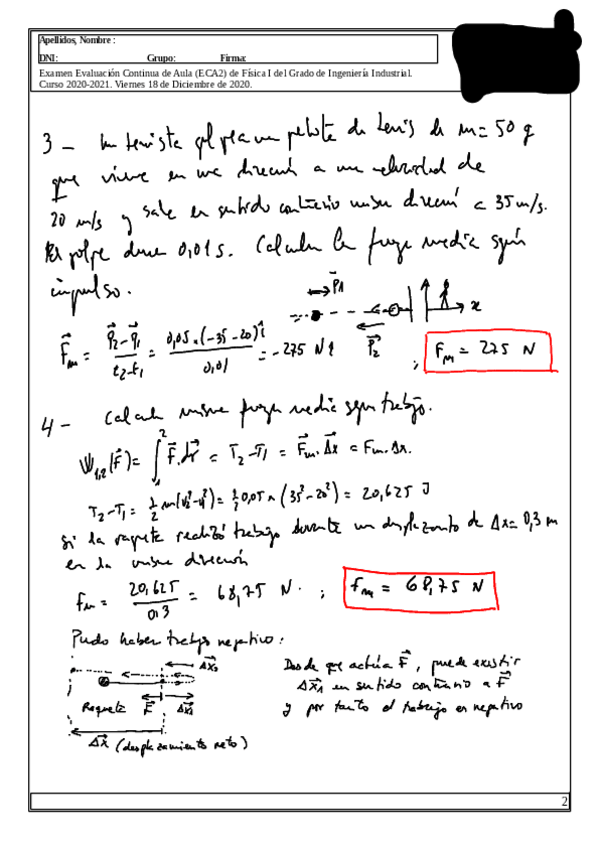 Apellidos, Nombre :
DNI: Grupo: Firma:
Examen Evaluación Continua de Aula (ECA2) de Física I del Grado de Ingeniería Industrial.
Curso 2020-2021. Viernes 18 de Diciembre de 2020.
3 - Un tenista golpea una pelota de tenis de m = 50 g
que viene en una dirección a una velocidad de
20 m/s y sale en sentido contrario misma dirección a 35 m/s.
El golpe dura 0,01 s. Calcular la fuerza media según
impulso.
P⃗1
x
P⃗2
F⃗m = (P⃗2 - P⃗1)/(t2 - t1) = (0,05 · (-35 - 20) î)/0,01 = -275 N î ; Fm = 275 N
4 - Calcular misma fuerza media según trabajo.
W1,2 (F⃗) = ∫₁² F⃗ · dr⃗ = T2 - T1 = F⃗m · Δx⃗ = Fm · Δx.
T2 - T1 = 1/2 m (v2² - v1²) = 1/2 0,05 × (35² - 20²) = 20,625 J
Si la raqueta realizó trabajo durante un desplazamiento de Δx = 0,3 m
en la misma dirección
Fm = 20,625/0,3 = 68,75 N . ; Fm = 68,75 N
Pudo haber trabajo negativo :
Δx⃗2
Raqueta F⃗ Δx⃗1
Δx⃗ (desplazamiento neto)
Desde que actúa F⃗, puede existir
Δx⃗1 en sentido contrario a F⃗
y por tanto el trabajo es negativo
2